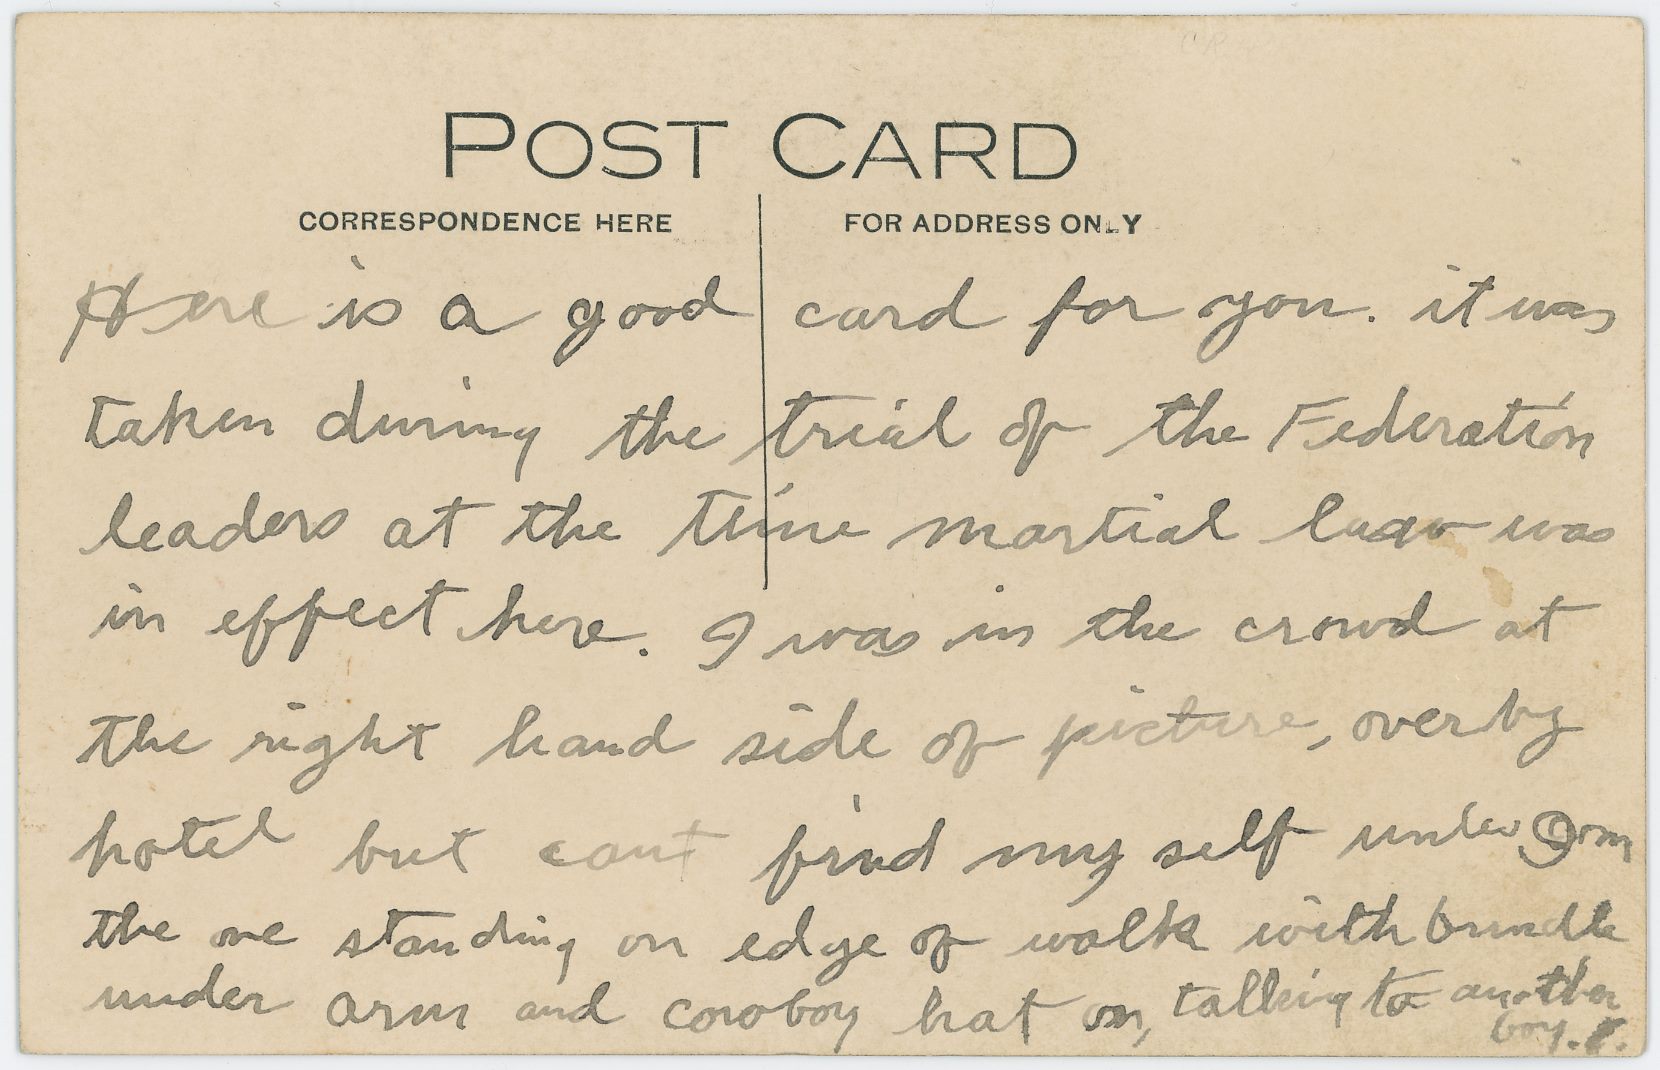 POST CARD
CORRESPONDENCE HERE
FOR ADDRESS ONLY
Here is a good card for you. it was
taken during the trial of the Federation
leaders at the time martial law was
in effect here. I was in the crowd at
the right hand side of picture, over by
hotel but cant find my self unless I am
the one standing on edge of walk with bundle
under arm and cowboy hat on, talking to another
boy.